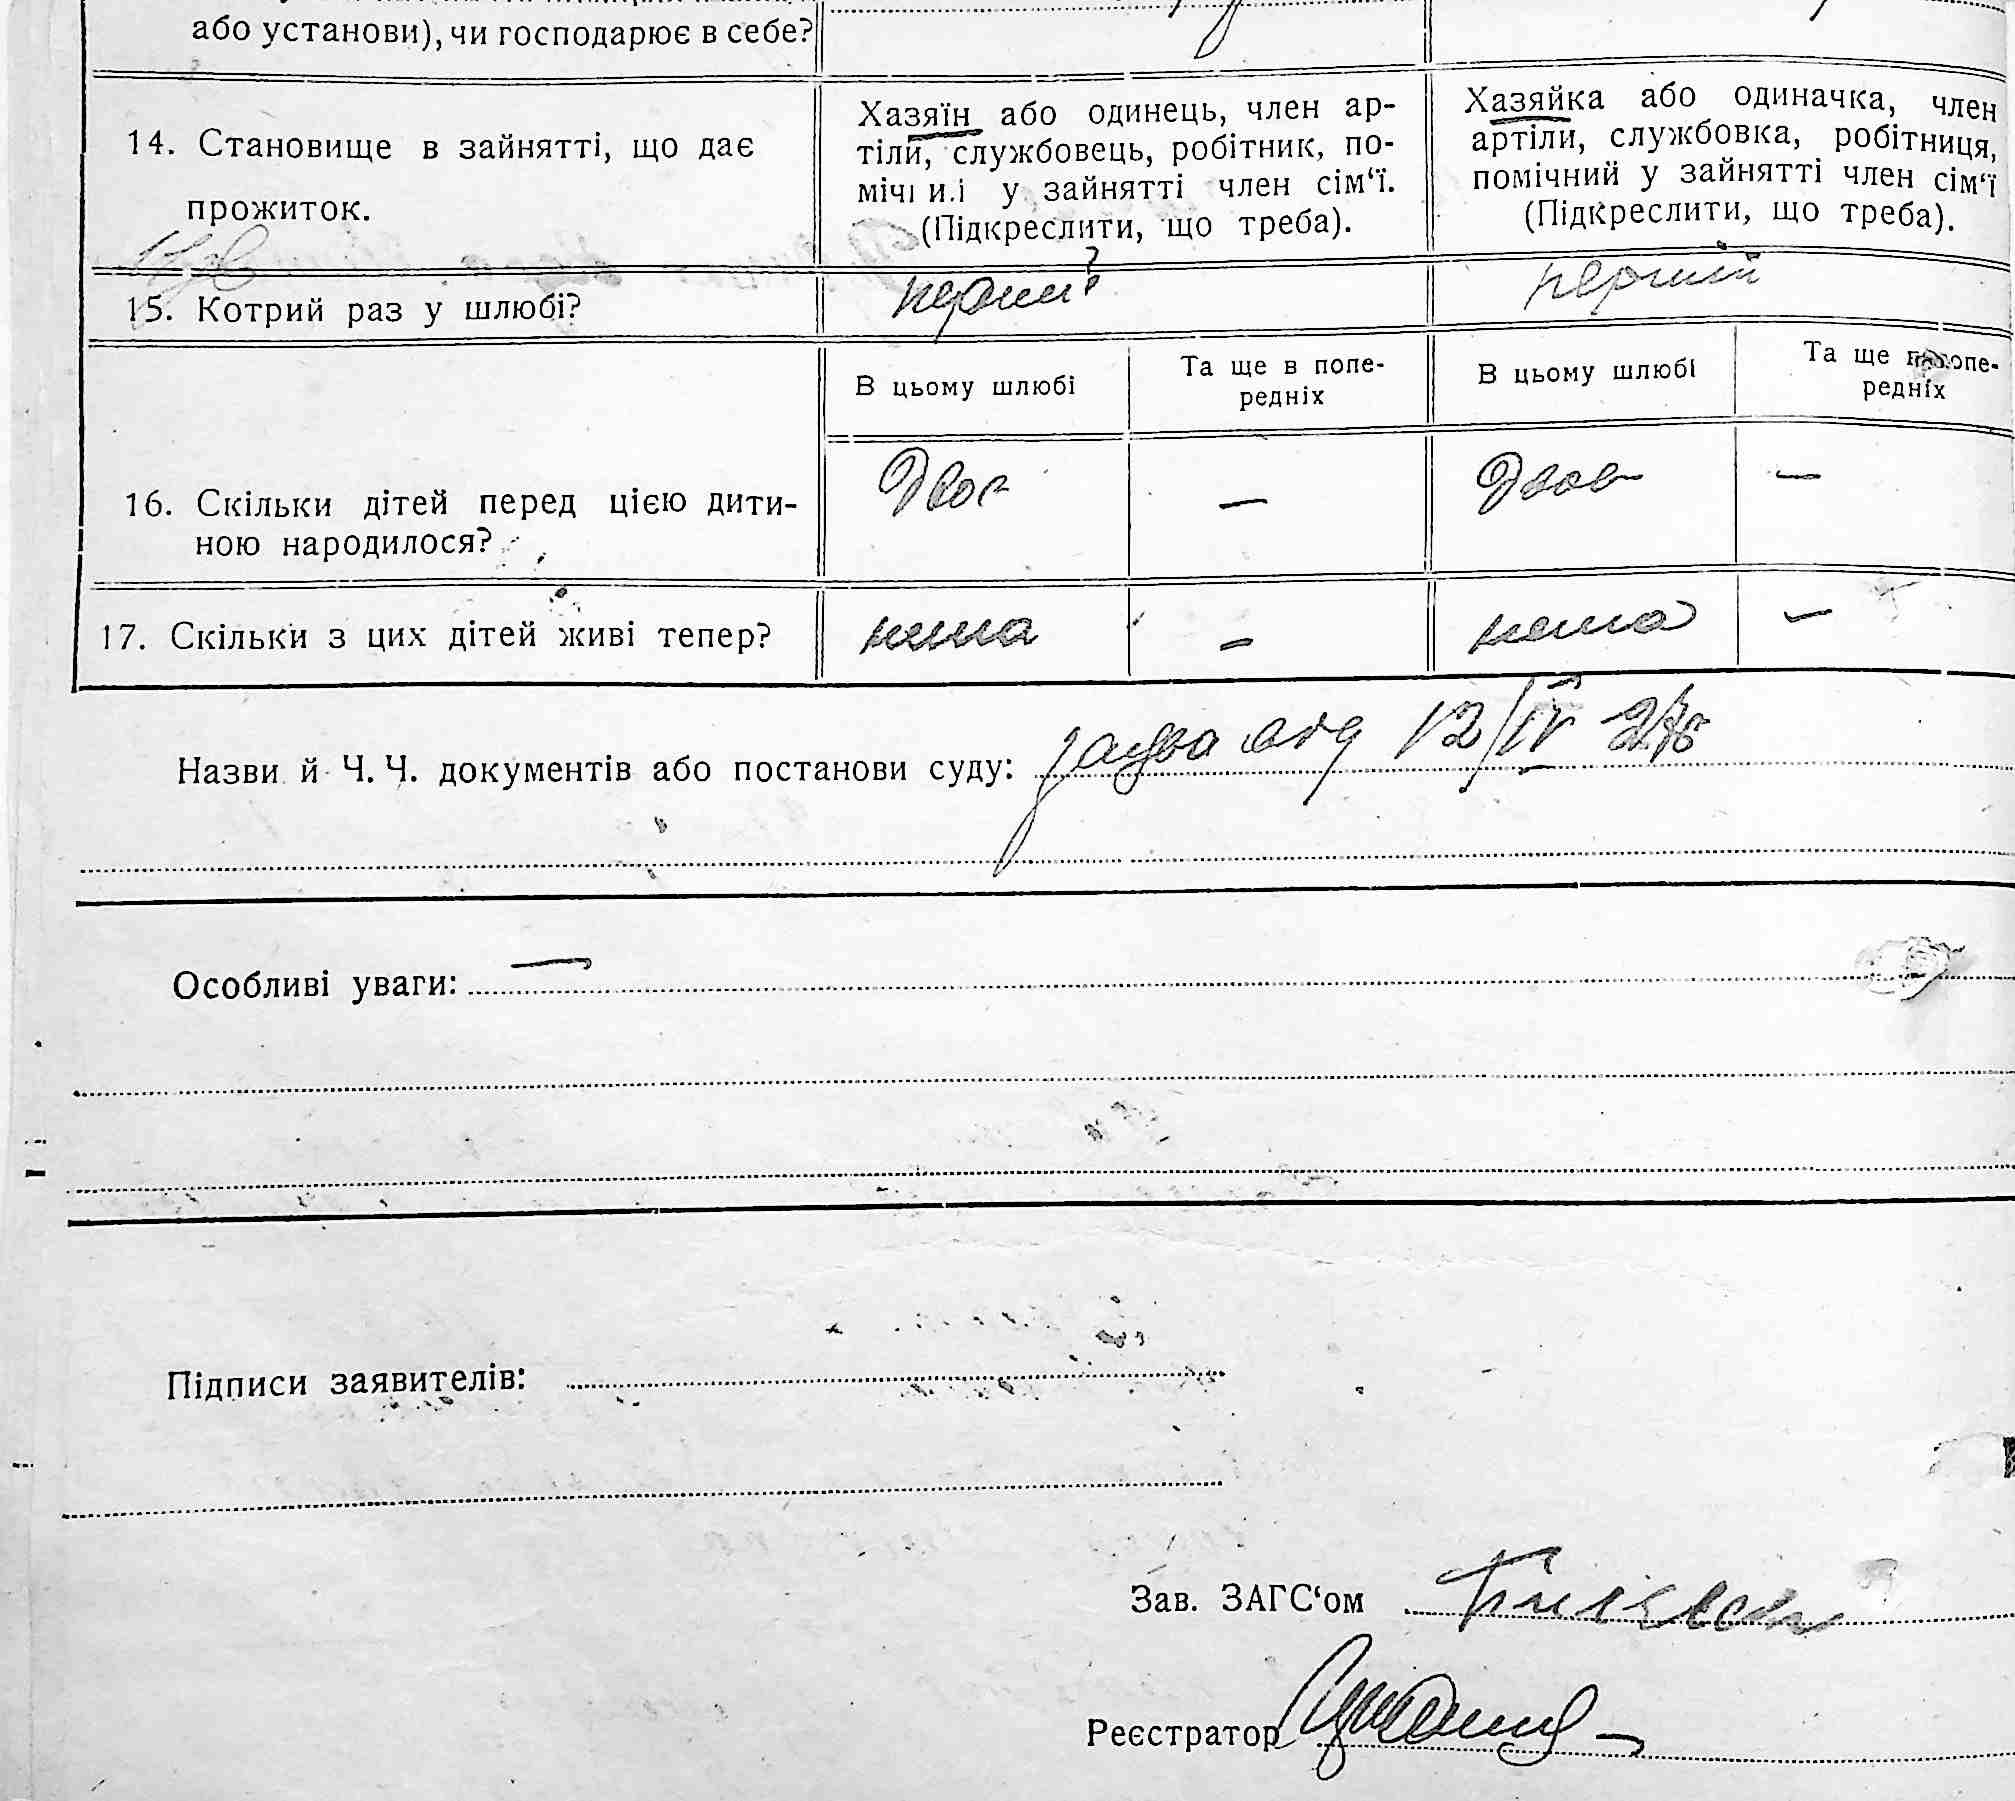 або установи), чи господарює в себе?
14. Становище в зайнятті, що дає
прожиток.
Хазяїн або одинець, член ар-
тіли, службовець, робітник, по-
мічний у зайнятті член сім‘ї.
(Підкреслити, що треба).
Хазяйка або одиначка, член
артіли, службовка, робітниця,
помічний у зайнятті член сім‘ї
(Підкреслити, що треба).
15. Котрий раз у шлюбі?
перший
перший
В цьому шлюбі
Та ще в попе-
редніх
В цьому шлюбі
Та ще в попе-
редніх
16. Скільки дітей перед цією дити-
ною народилося?
Двоє
—
Двоє
—
17. Скільки з цих дітей живі тепер?
нема
—
нема
—
Назви й Ч. Ч. документів або постанови суду: заява від 12/IV
Особливі уваги: —
Підписи заявителів:
Зав. ЗАГС‘ом
Реєстратор